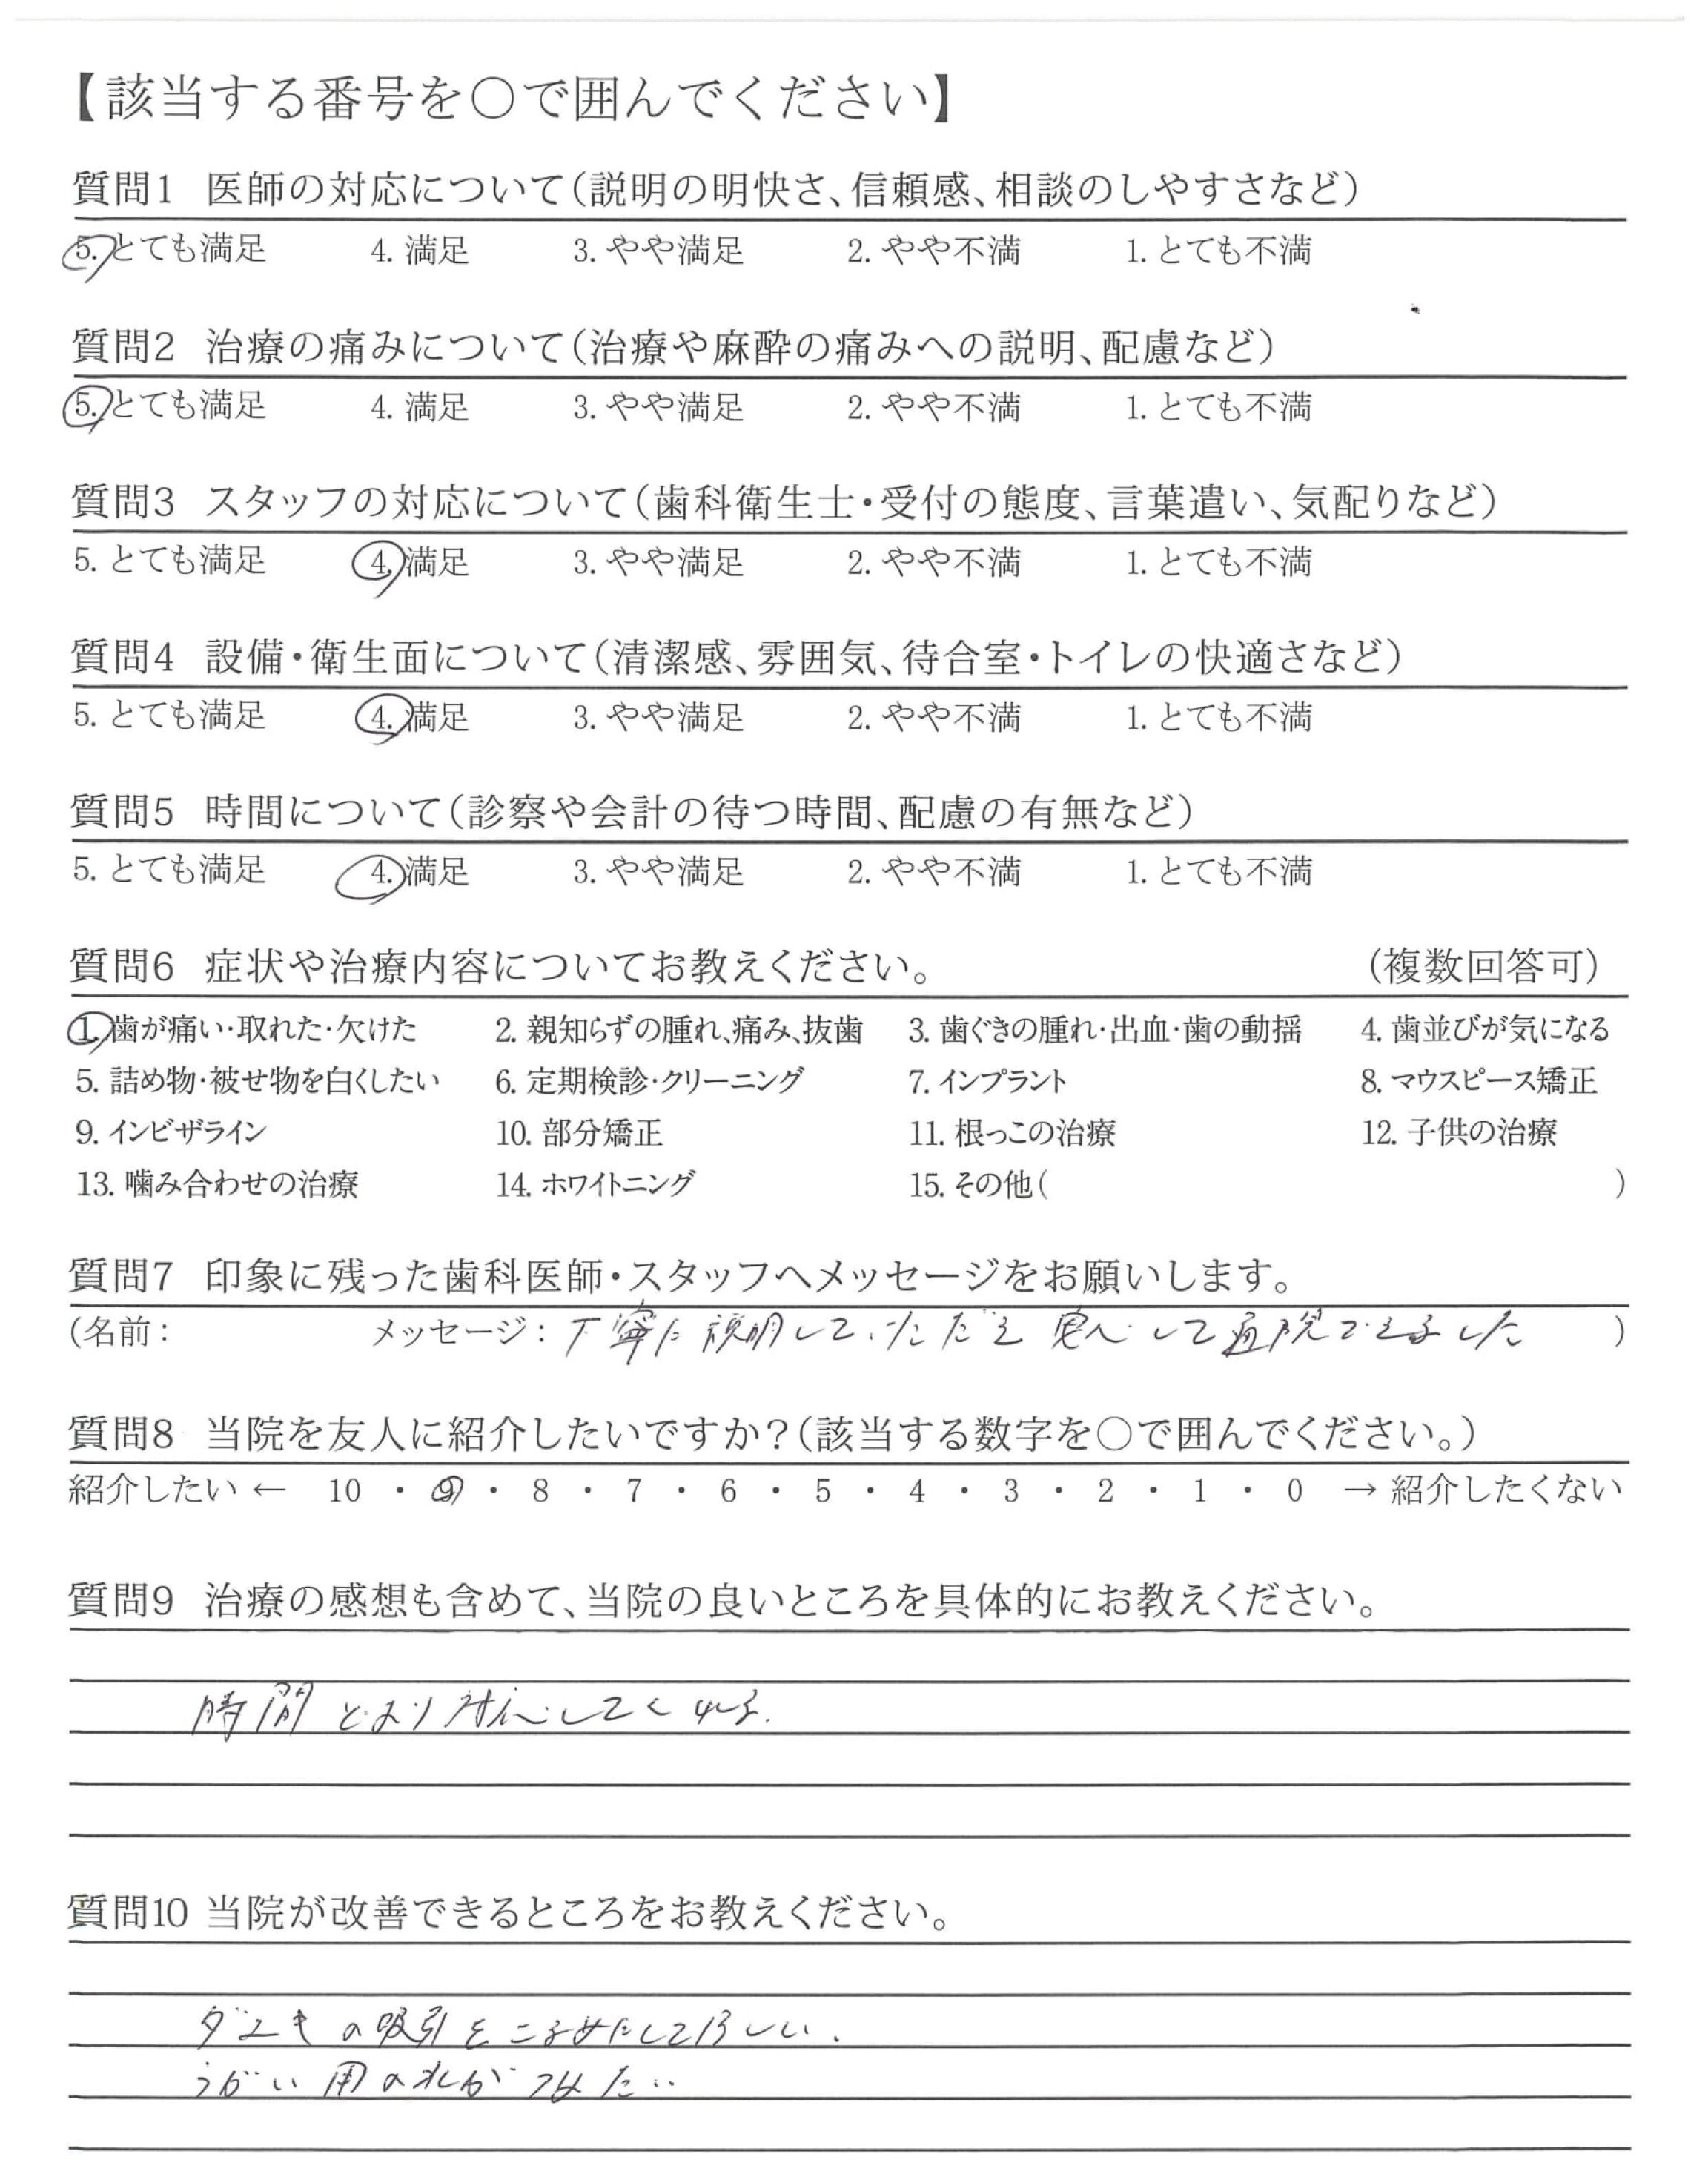 【該当する番号を○で囲んでください】
質問1 医師の対応について（説明の明快さ、信頼感、相談のしやすさなど）
5. とても満足 4. 満足 3. やや満足 2. やや不満 1. とても不満
質問2 治療の痛みについて（治療や麻酔の痛みへの説明、配慮など）
5. とても満足 4. 満足 3. やや満足 2. やや不満 1. とても不満
質問3 スタッフの対応について（歯科衛生士・受付の態度、言葉遣い、気配りなど）
5. とても満足 4. 満足 3. やや満足 2. やや不満 1. とても不満
質問4 設備・衛生面について（清潔感、雰囲気、待合室・トイレの快適さなど）
5. とても満足 4. 満足 3. やや満足 2. やや不満 1. とても不満
質問5 時間について（診察や会計の待つ時間、配慮の有無など）
5. とても満足 4. 満足 3. やや満足 2. やや不満 1. とても不満
質問6 症状や治療内容についてお教えください。 （複数回答可）
1. 歯が痛い・取れた・欠けた 2. 親知らずの腫れ、痛み、抜歯 3. 歯ぐきの腫れ・出血・歯の動揺 4. 歯並びが気になる
5. 詰め物・被せ物を白くしたい 6. 定期検診・クリーニング 7. インプラント 8. マウスピース矯正
9. インビザライン 10. 部分矯正 11. 根っこの治療 12. 子供の治療
13. 噛み合わせの治療 14. ホワイトニング 15. その他（ ）
質問7 印象に残った歯科医師・スタッフへメッセージをお願いします。
（名前： メッセージ：丁寧に説明していただき 安心して通院できました ）
質問8 当院を友人に紹介したいですか？（該当する数字を○で囲んでください。）
紹介したい ← 10 ・ 9 ・ 8 ・ 7 ・ 6 ・ 5 ・ 4 ・ 3 ・ 2 ・ 1 ・ 0 → 紹介したくない
質問9 治療の感想も含めて、当院の良いところを具体的にお教えください。
時間どおり対応してくれる.
質問10 当院が改善できるところをお教えください。
ダエキの吸引をこまめにしてほしい.
うがい用の水がつめたい